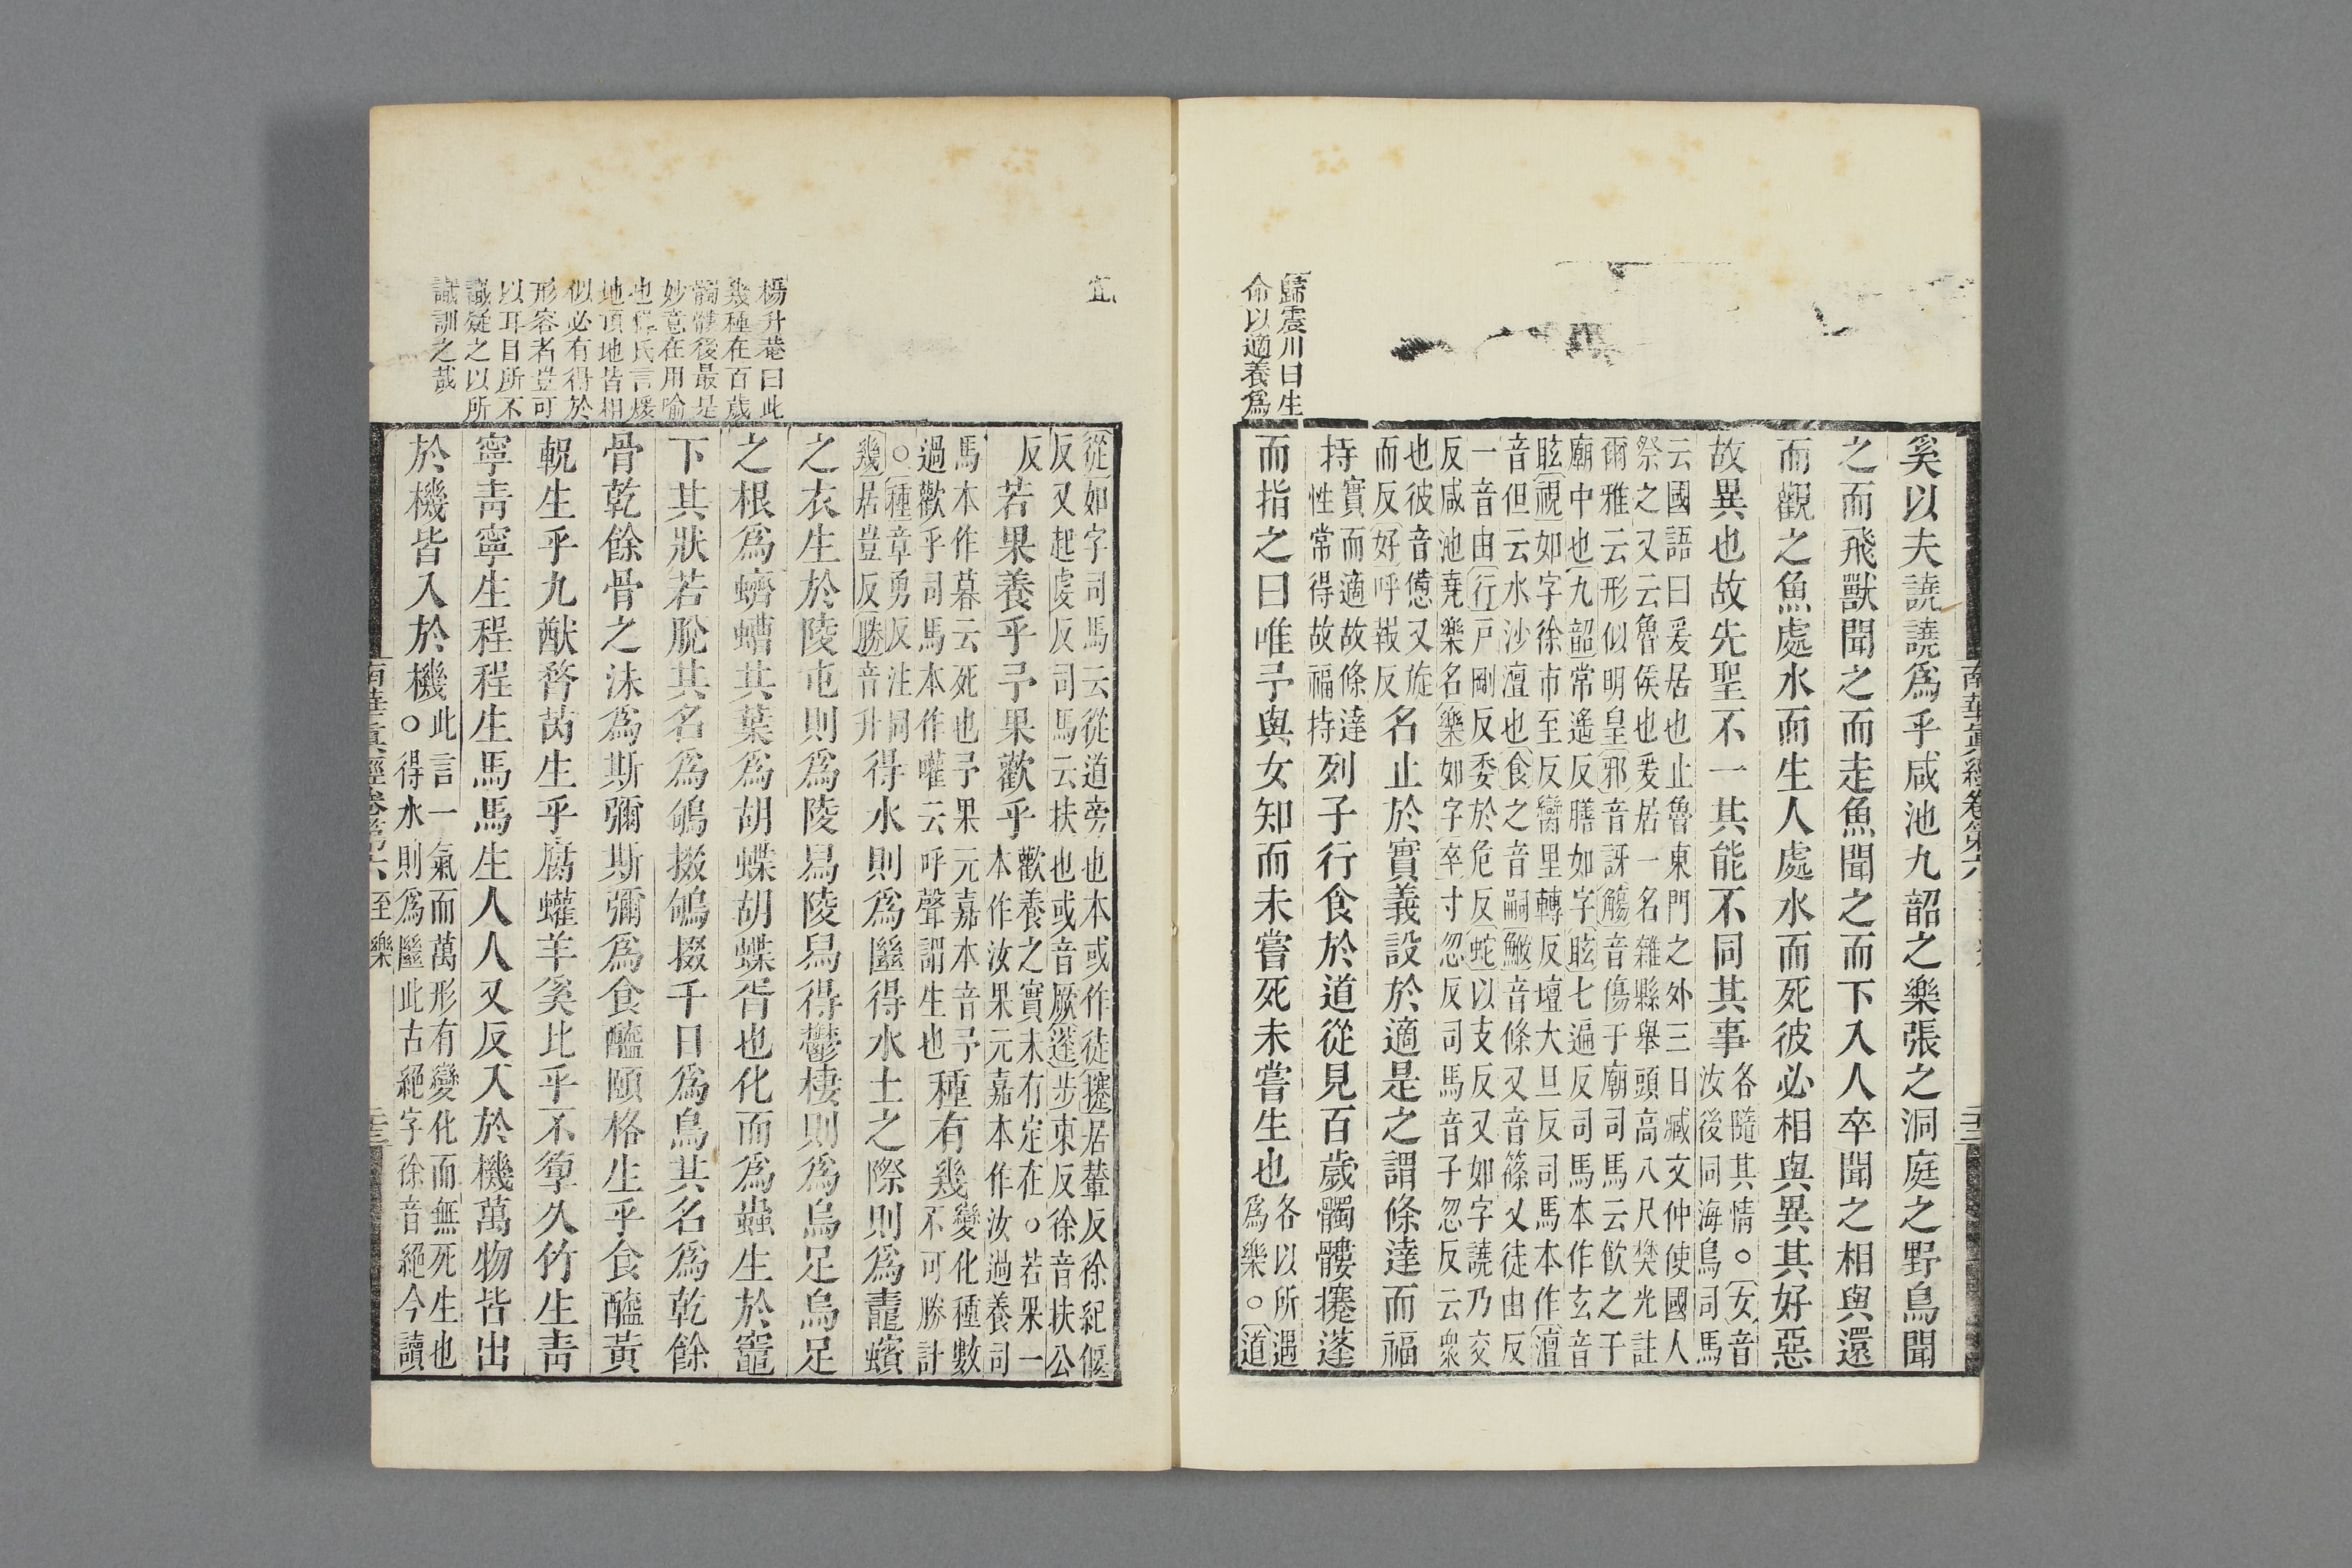 奚以夫譊譊爲乎咸池九韶之樂張之洞庭之野鳥聞
之而飛獸聞之而走魚聞之而下入人卒聞之相與還
而觀之魚處水而生人處水而死彼必相與異其好惡
故異也故先聖不一其能不同其事各隨其情○女音
汝後同海鳥司馬
云國語曰爰居也止魯東門之外三日臧文仲使國人
祭之又云魯侯也爰居一名雜縣舉頭高八尺樊光註
爾雅云形似明皇邪音訝觴音傷于廟司馬云飲之于
廟中也九韶常遙反膳如字眩七遍反司馬本作玄音
眩視如字徐市至反臠里轉反壇大旦反司馬本作澶
音但云水沙澶也食之音嗣鰷音條又音篠又徒由反
一音由行戸剛反委於危反蛇以支反又如字譊乃交
反咸池堯樂名樂如字卒寸忽反司馬音子忽反云衆
也彼音憊又旋
而反好呼報反名止於實義設於適是之謂條達而福
持實而適故條達
性常得故福持列子行食於道從見百歲髑髏攓蓬
而指之曰唯予與女知而未嘗死未嘗生也各以所遇
爲樂○道
歸震川曰生
命以適養爲
南華眞經卷第六
從如字司馬云從道旁也本或作徒攓居輦反徐紀偃
反又起虔反司馬云扶也或音厥蓬步東反徐音扶公
反若果養乎予果歡乎歡養之實未有定在○若果一
本作汝果元嘉本作汝過養司
馬本作暮云死也予果元嘉本音予
過歡乎司馬本作嚾云呼聲謂生也種有幾變化種數
不可勝計
○種章勇反注同
幾居豈反勝音升得水則爲㡭得水土之際則爲鼃蠙
之衣生於陵屯則爲陵舄陵舄得鬱棲則爲烏足烏足
之根爲蠐螬其葉爲胡蝶胡蝶胥也化而爲蟲生於竈
下其狀若脫其名爲鴝掇鴝掇千日爲鳥其名爲乾餘
骨乾餘骨之沫爲斯彌斯彌爲食醯頤輅生乎食醯黃
軦生乎九猷瞀芮生乎腐蠸羊奚比乎不箰久竹生青
寧青寧生程程生馬馬生人人又反入於機萬物皆出
於機皆入於機此言一氣而萬形有變化而無死生也
○得水則爲㡭此古絕字徐音絕今讀
宜
楊升菴曰此
幾種在百歲
髑髏後最是
妙意在用喻
也釋氏言煖
地頂地皆相
似必有得於
形容者豈可
以耳目所不
識疑之以所
識訓之哉
南華眞經卷第六 至樂